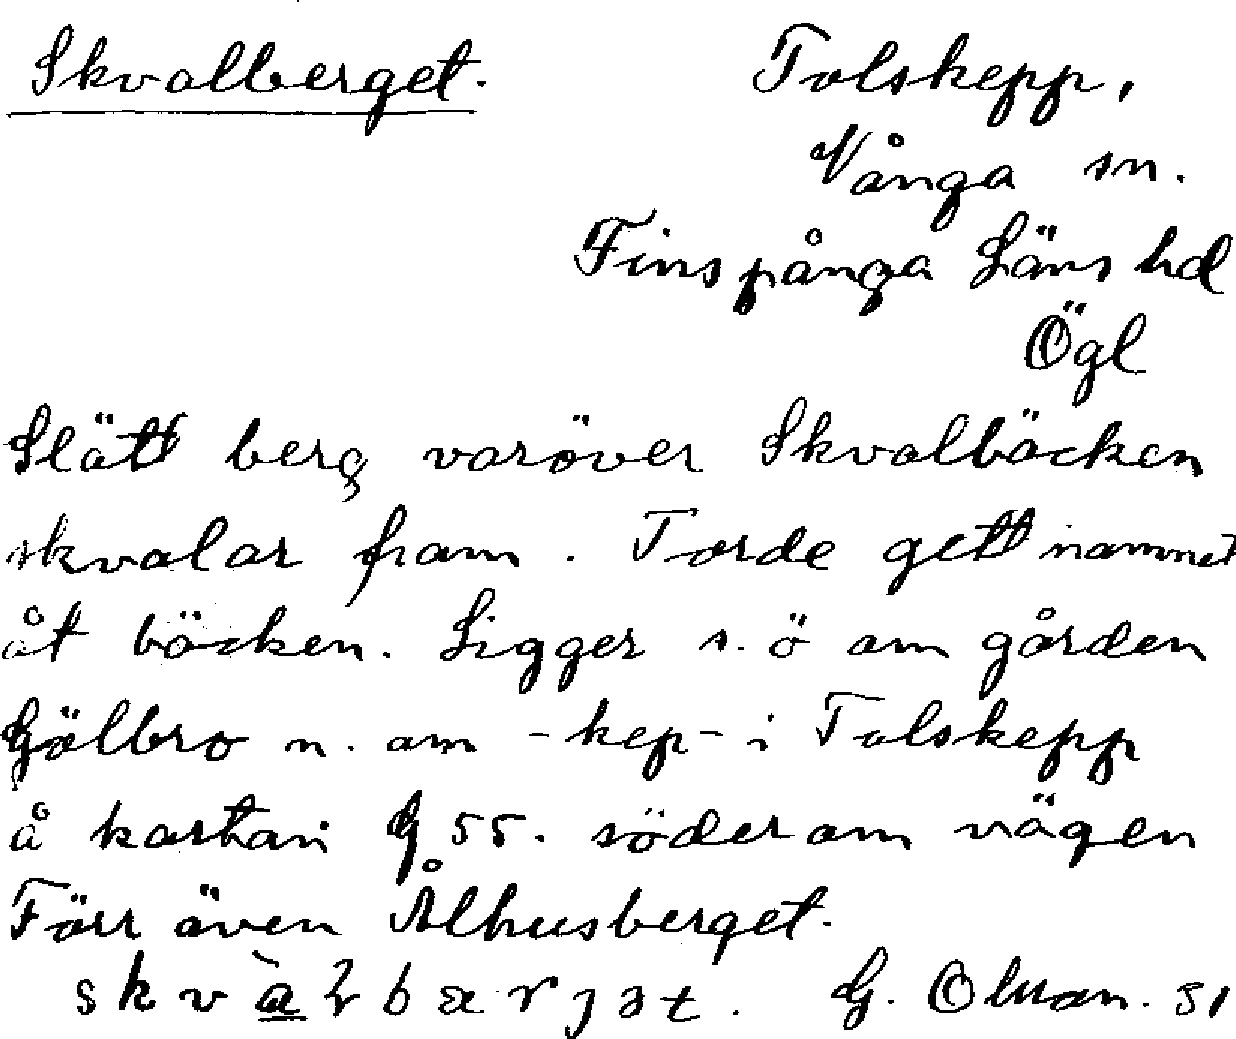 Skvalberget. Tolskepp,
Vånga sn.
Finspånga Läns hd
Ögl
Slätt berg varöver Skvalbäcken
skvalar fram. Torde gett namnet
åt bäcken. Ligger s. ö om gården
Gölbro n. om -kep- i Tolskepp
å kartan G 55. söder om vägen
Förr även Ålhusberget.
G. Olsson. 31